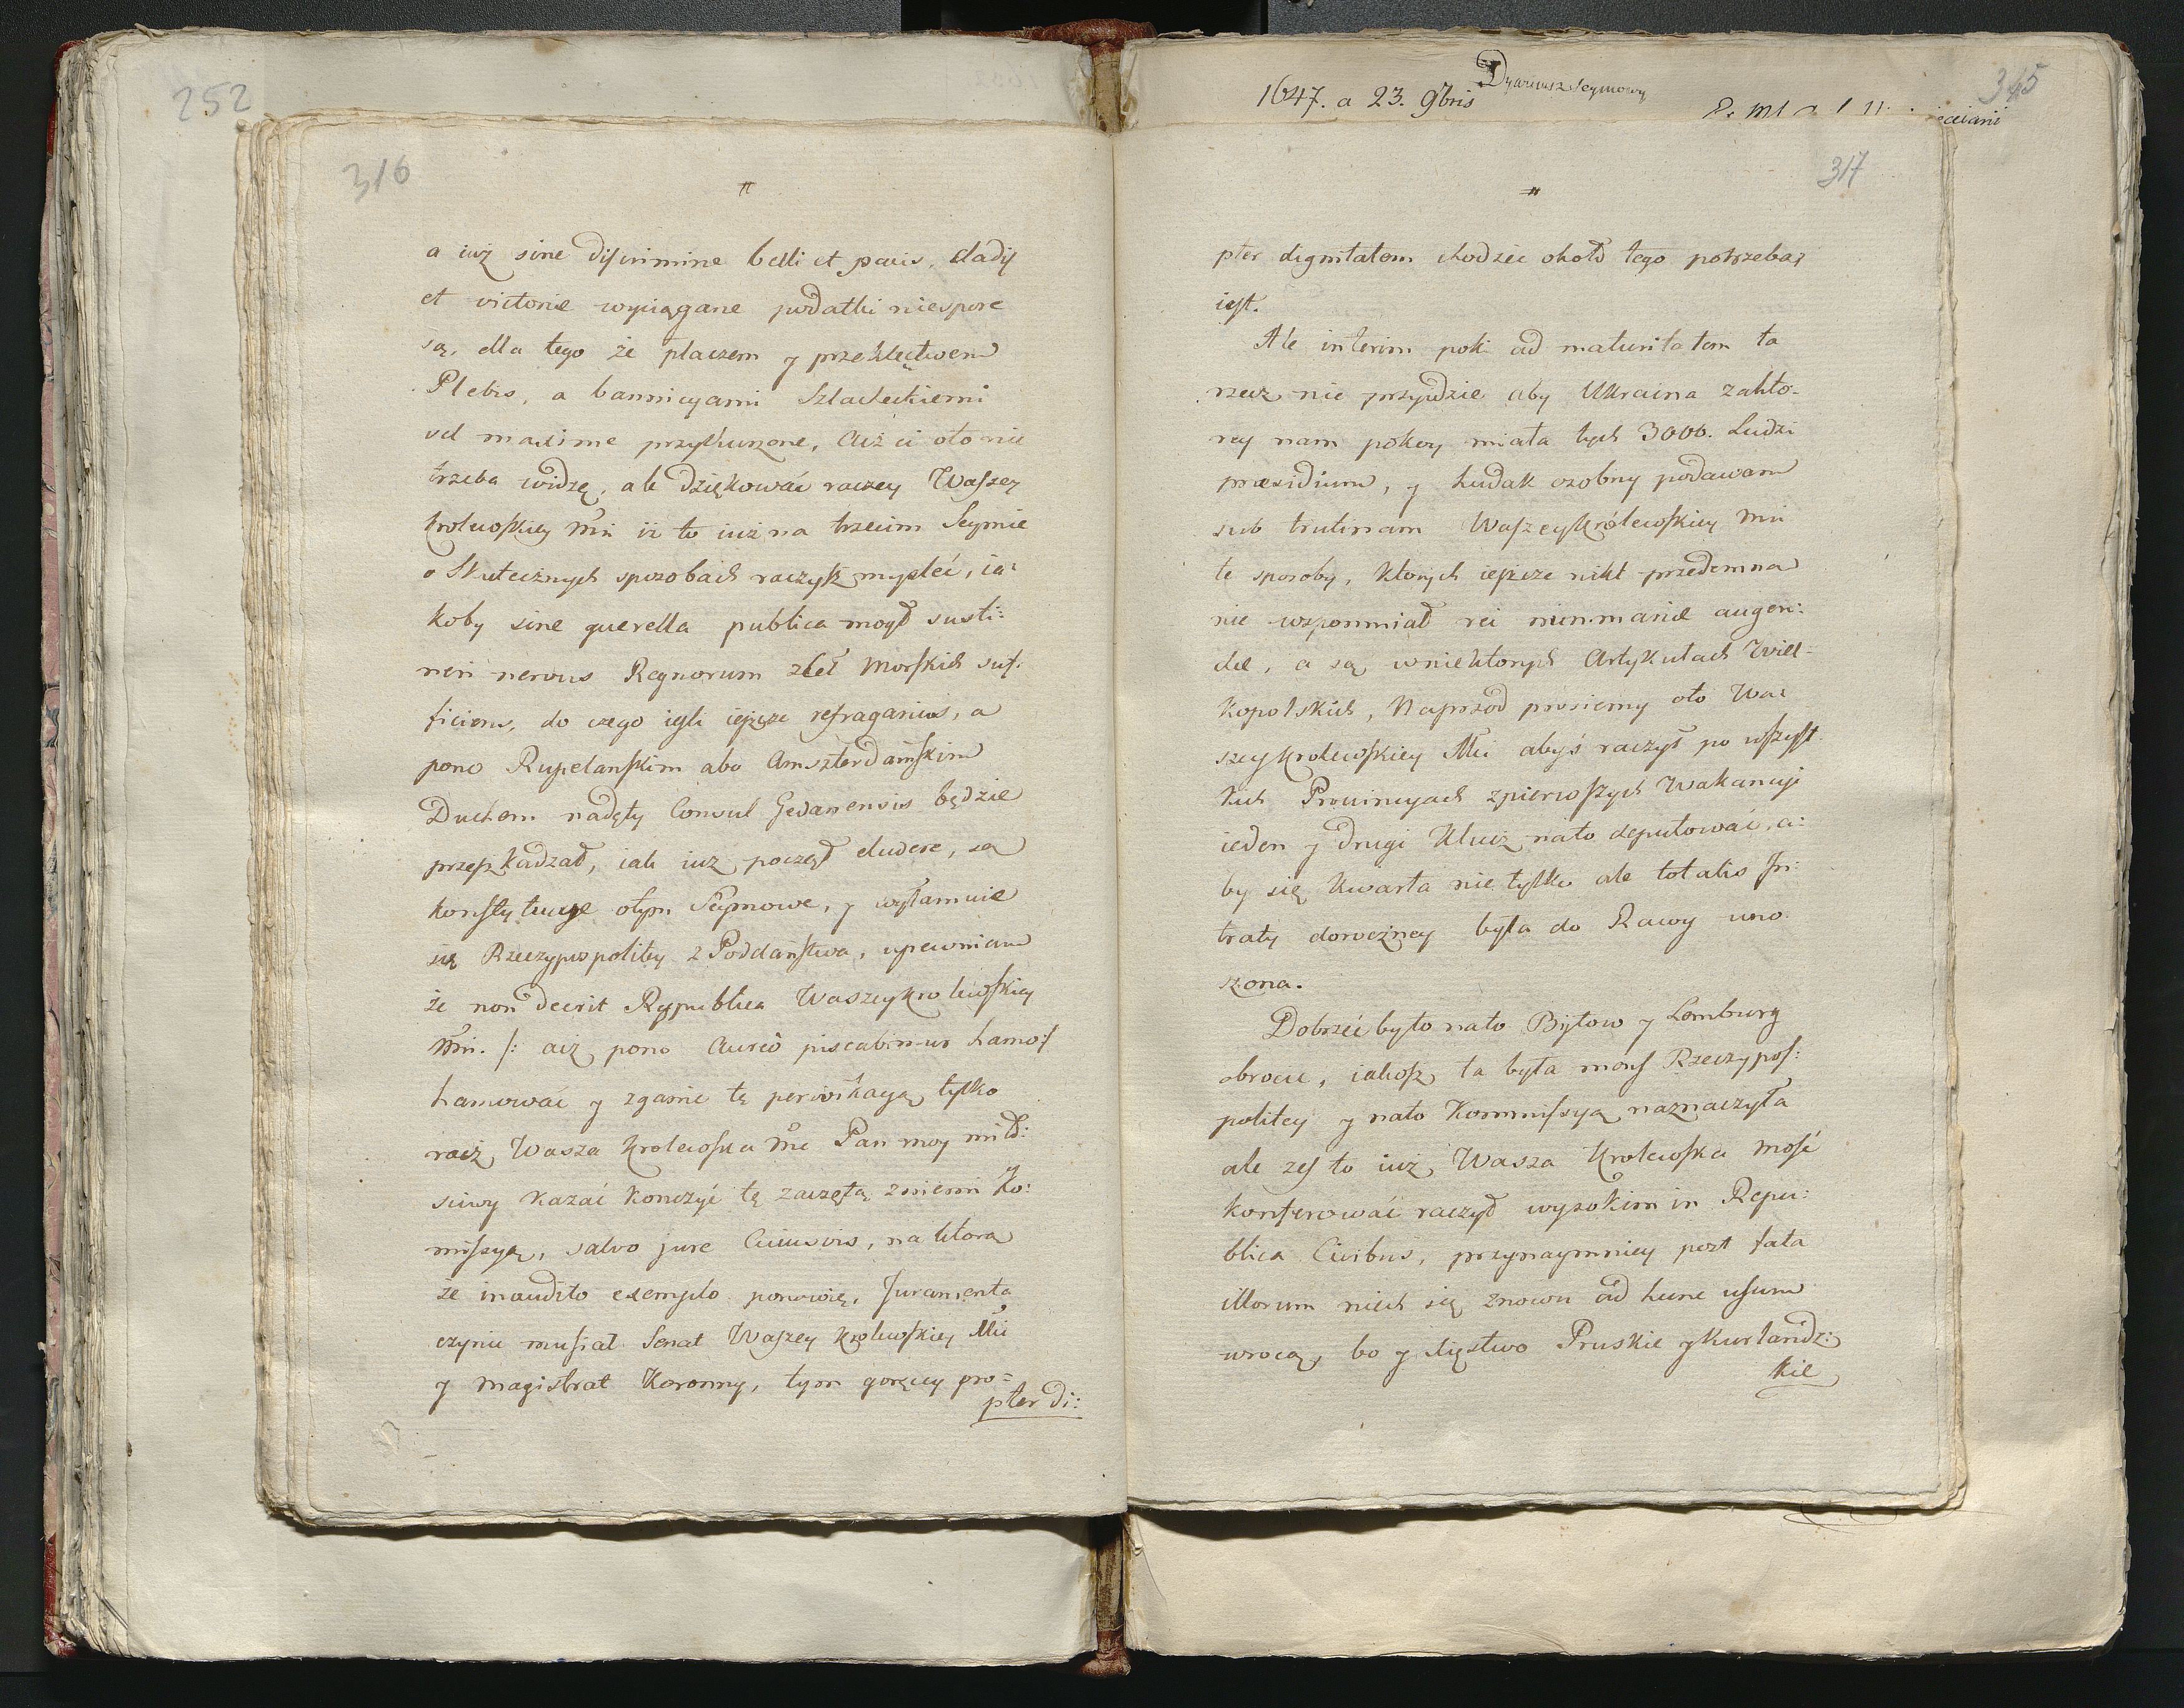 252
316
a iuż sine discrimine belli et pacis, cladis
et victoriæ wyciągane podatki niespore
są, dla tego że płaczem y przeklęctwem
Plebis, a bannicyami Szlacheckiemi
vel maxime przytłuszone, Aiż ci oto nie
trzeba widzę, ale dziękować raczey Waszey
Krolewskiey Mci iż to iuż na trzecim Seymie
o Skutecznych sposobach raczysz mysleć, ia:
koby sine querella publica mogł susti:
neri nervus Regnorum z Ceł Morskich suf:
ficiens, do czego iesli ieszcze refragarius, a
pono Rupelanskim abo Amszterdamskim
Duchem nadęty Consul Gedanensis będzie
przeszkadzał, iak iuz począł eludere, są
konstytucye otym Seymowe, y wyłamuie
się Rzeczypospolitey z Poddaństwa, upewniam
że non deerit Respublica Waszey Krolewskiey
Mci. /: aiż pono Aureo piscabimur hamo :/
hamować y zganic tę perwikacyą, tylko
racz Wasza Krolewska Mc Pan moy miło:
sciwy kazać konczyć tę zaczętą z niemi Ko:
missyą, salvo jure Cuiusvis, na ktora
że inaudito exemplo ponowię, Juramenta
czynic musiał Senat Waszey Krolewskiey Mci
y Magistrat Koronny, tym goręcey pro=
pter di:
1647. a 23. 9bris
Dyariusz Seymowy
345
317
pter dignitatem chodzic około tego potrzeba
iest.
Ale interim poki ad maturitatem ta
rzecz nie przyidzie aby Ukraina zakto-
rey nam pokoy miała tych 3000. Ludzi
præsidium, y tudak osobny podawam
sub trutinam Waszey Królewskiey Mci
te sposoby, ktorych ieszcze nikt przedemna
nie wspomniał rei nummariæ augen:
dæ, a są w niektorych Artykułach Wiel:
kopolskich, Naprzod prosiemy oto Wa:
szey Krolewskiey Mci abyś raczył po wszyst
kich Prowincyach z pierwszych Wakancyi
ieden y drugi Klucz na to deputować, a:
by się Kwarta nie tylko ale totalis In:
traty doroczney była do Rawy uno
szona.
Dobrzeć było nato Bytow y Lemburg
obrocic, iakosz ta była mens Rzeczypos:
politey y nato Kommissyą naznaczyła
ale zes to iuż Wasza Krolewska Mość
konferować raczył wysokim in Repu:
blica Civibus, przynaymniey post fata
illorum niech się znowu ad hunc usum
wrocą, bo y Xięstwo Pruskie y Kurlandz:
kie